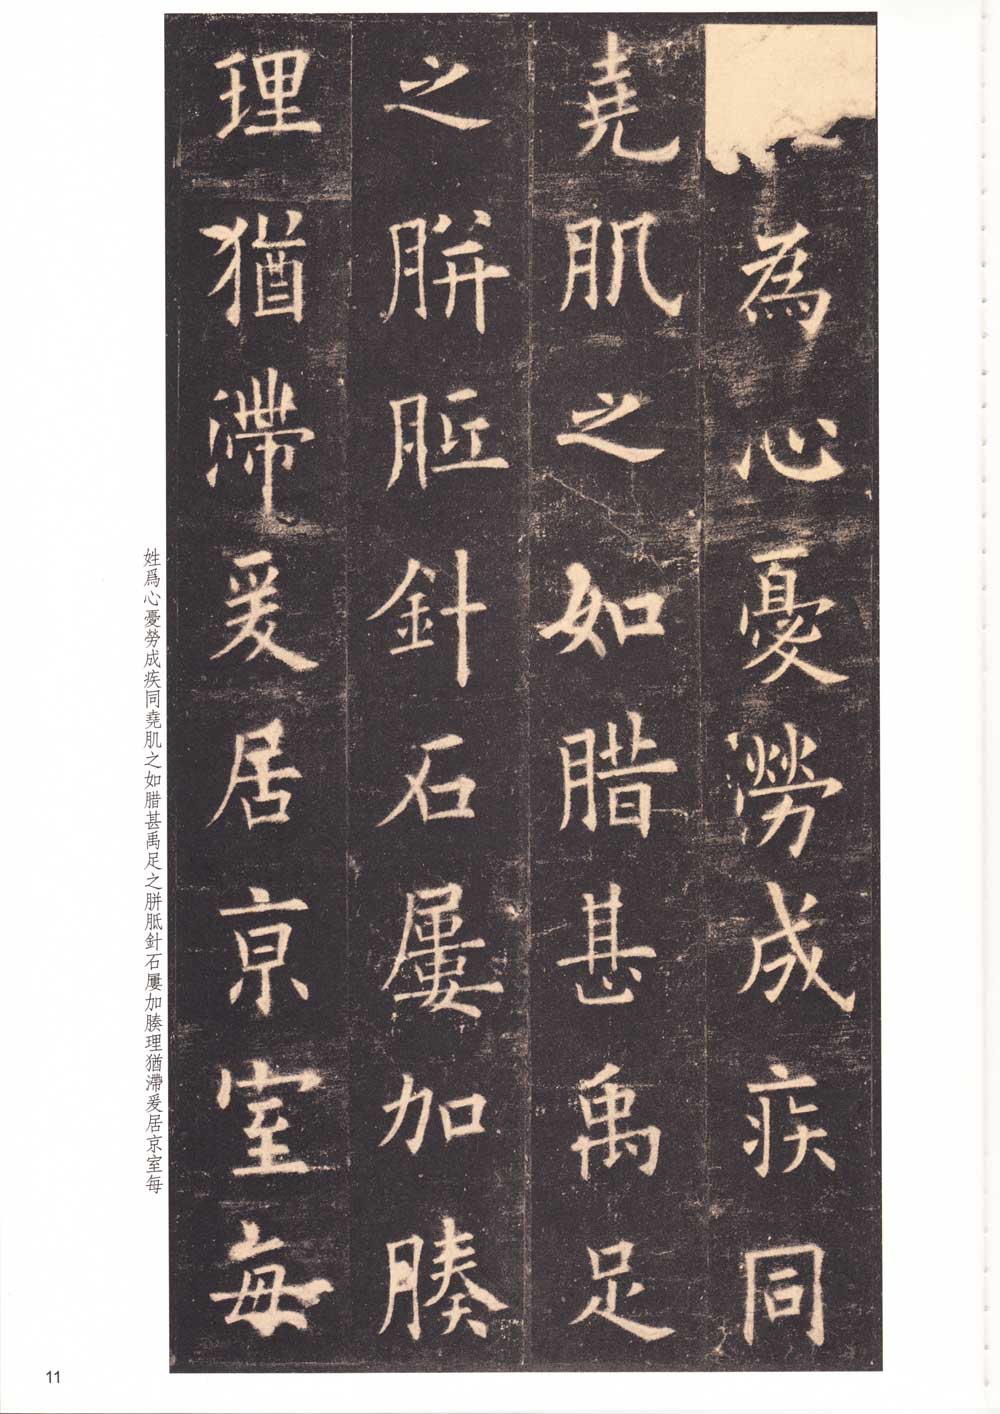 為心憂勞成疾同
堯肌之如腊甚禹足
之胼胝針石屢加腠
理猶滯爰居京室每
姓爲心憂勞成疾同堯肌之如腊甚禹足之胼胝針石屢加腠理猶滯爰居京室每
11